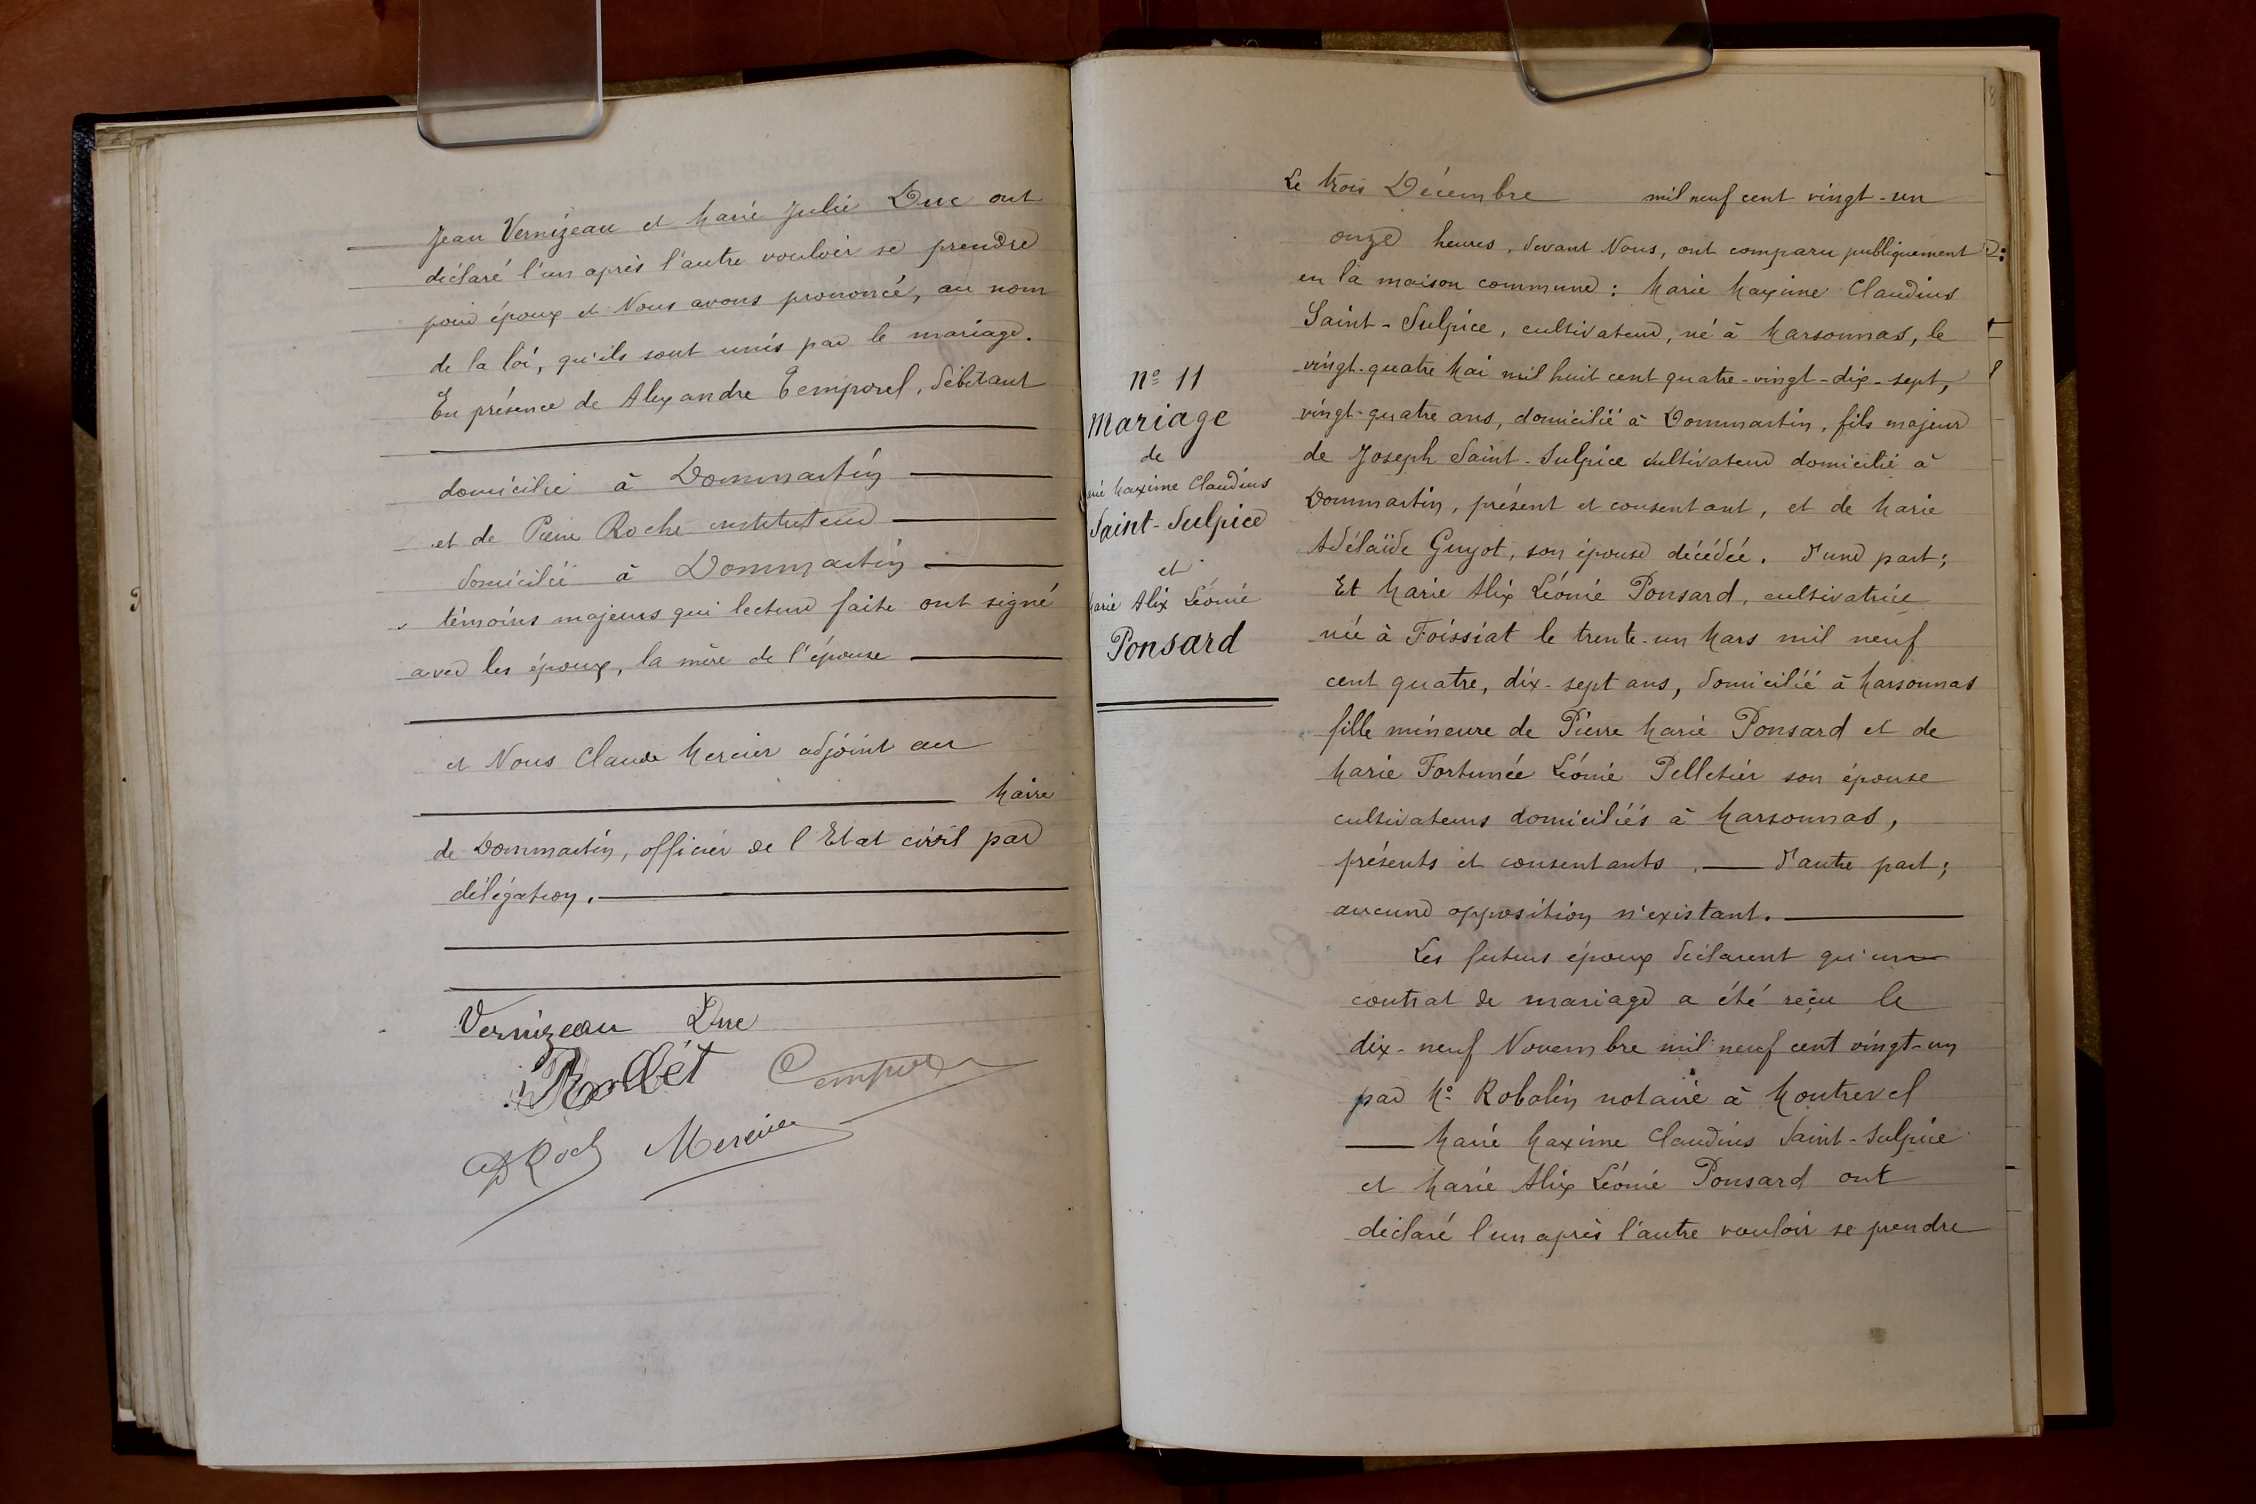 Jean Vernizeau et Marie Julie Duc ont
déclaré l'un après l'autre vouloir se prendre
pour époux et Nous avons prononcé, au nom
de la loi, qu'ils sont unis par le mariage.
En présence de Alexandre Temporel, débitant
domicilié à Dommartin
et de Pierre Roche instituteur
domicilié à Dommartin
témoins majeurs qui lecture faite ont signé
avec les époux, la mère de l'épouse
et Nous Claude Mercier adjoint au
Maire
de Dommartin, officier de l'Etat civil par
délégation.
Vernizeau Duc
Mercier
Le trois Décembre mil neuf cent vingt-un
onze heures, devant Nous, ont comparu publiquement
en la maison commune : Marie Maxime Claudius
Saint-Sulpice, cultivateur, né à Marsonnas, le
vingt-quatre Mai mil huit cent quatre-vingt-dix-sept,
vingt-quatre ans, domicilié à Dommartin, fils majeur
de Joseph Saint-Sulpice cultivateur domicilié à
Dommartin, présent et consentant, et de Marie
Adélaïde Guyot, son épouse décédée. d'une part;
Et Marie Alix Léonie Ponsard, cultivatrice
née à Foissiat le trente-un Mars mil neuf
cent quatre, dix-sept ans, domiciliée à Marsonnas
fille mineure de Pierre Marie Ponsard et de
Marie Fortunée Léonie Pelletier son épouse
cultivateurs domiciliés à Marsonnas,
présents et consentants. d'autre part;
aucune opposition n'existant.
Les futurs époux déclarent qu'un
contrat de mariage a été reçu le
dix-neuf Novembre mil neuf cent vingt-un
par Me Robolin notaire à Montrevel
Marie Maxime Claudius Saint-Sulpice
et Marie Alix Léonie Ponsard ont
déclaré l'un après l'autre vouloir se prendre
No 11
Mariage
de
Marie Maxime Claudius
Saint-Sulpice
et
Marie Alix Léonie
Ponsard